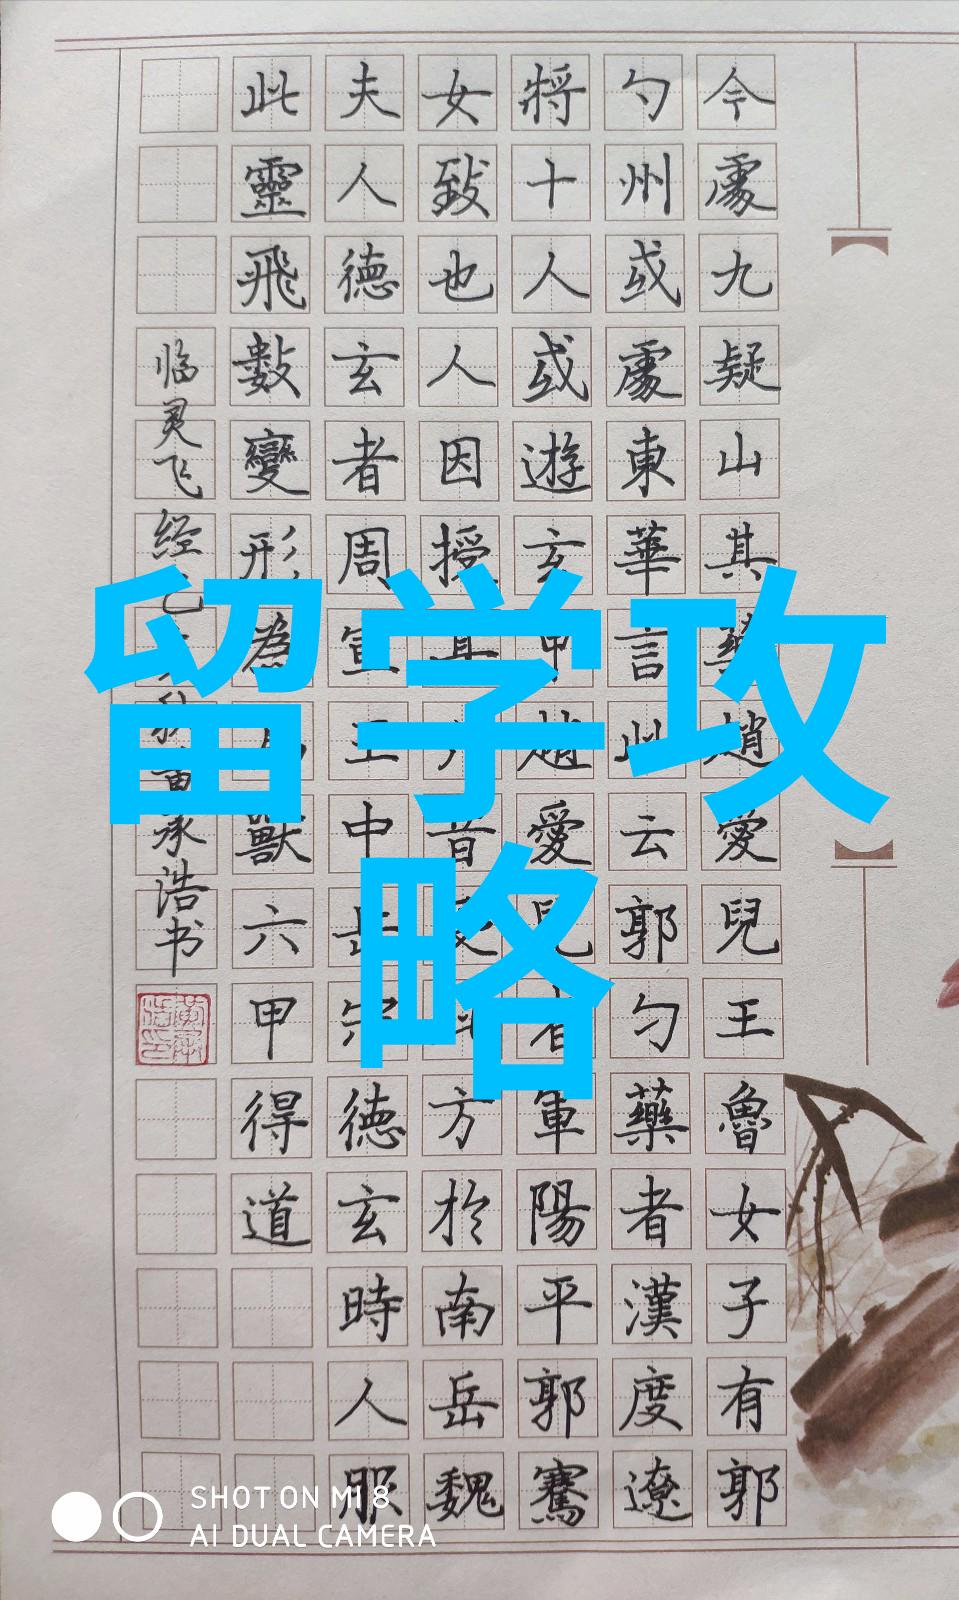 今處九疑山其藥趙愛兒王魯女子有郭
勺州或處東華言此云郭勺藥者漢度遼
將十人或遊玄趙愛兒者軍陽平郭騫
女致也人因授真昔方於南岳魏
夫人德玄者周宣王中岳宗德玄時人服
此靈飛數變形為獸六甲得道
临灵飞经承浩书
留学攻
略
SHOT ON MI 8
AI DUAL CAMERA